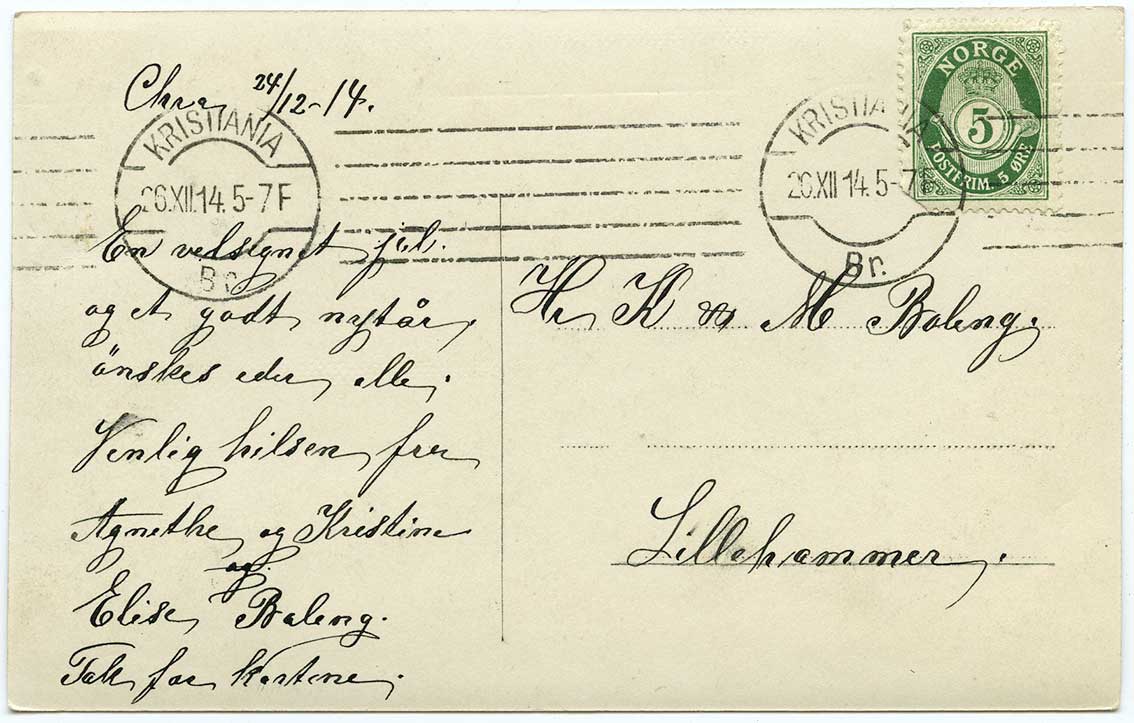 Chra 24/12-14.
KRISTIANIA
26.XII.14. 5-7 F
Br.
En velsignet jul.
og et godt nytår,
önskes eder alle.
Venlig hilsen fra
Agnethe og Kristine
og
Elise Baleng.
Tak for kortene.
NORGE
5
POSTFRIM. 5 ØRE
KRISTIANIA
26.XII.14. 5-7 F
Br.
Hr K & M Baleng.
Lillehammer.